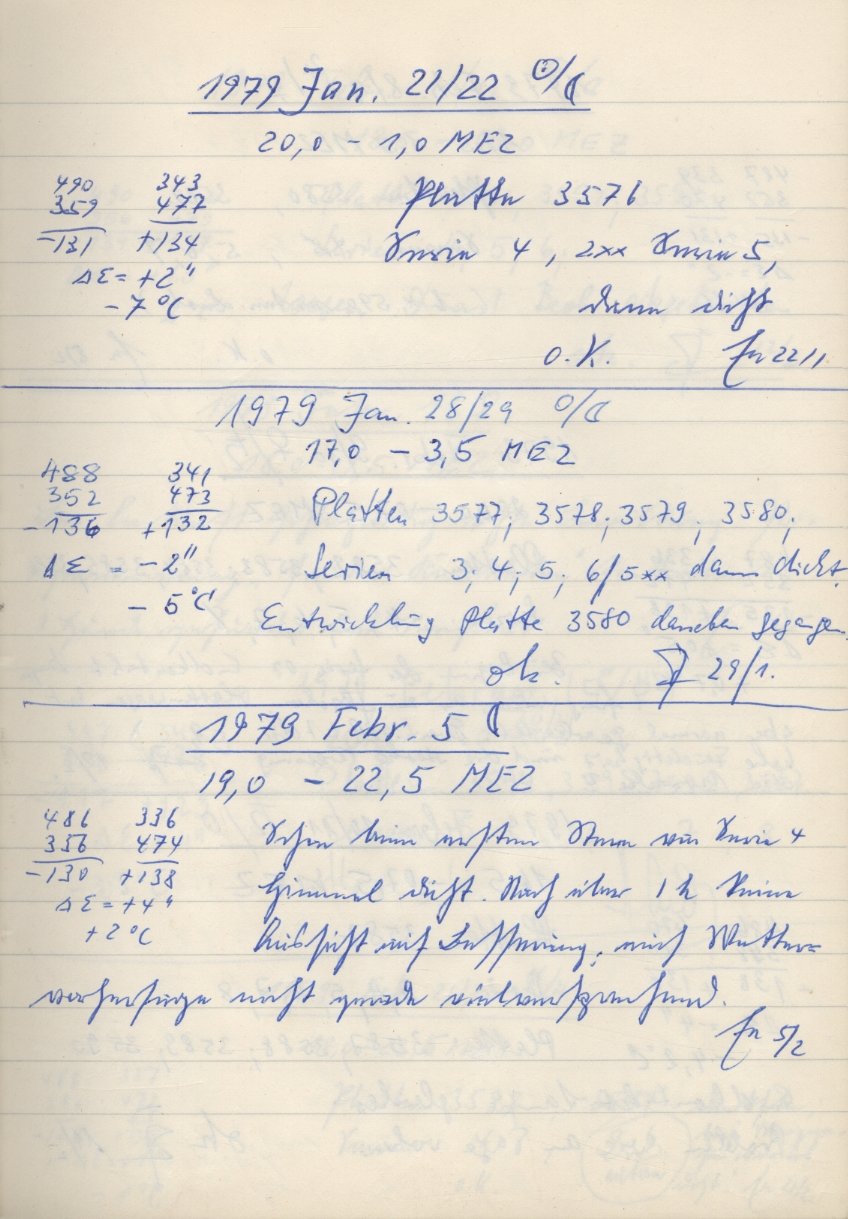 1979 Jan. 21/22 ☉/☾
20,0 - 1,0 MEZ
490 343
359 477
-131 +134
ΔΣ = +2"
-7°C
Platte 3576
Serie 4, 2xx Serie 5,
dann dicht
o.K. 22/1
1979 Jan. 28/29 ☉/☾
17,0 - 3,5 MEZ
488 341
352 473
-136 +132
ΔΣ = -2"
- 5°C
Platten 3577; 3578; 3579; 3580;
Serien 3; 4; 5; 6/5xx dann dicht.
Entwicklung Platte 3580 daneben gegangen.
ok. 29/1.
1979 Febr. 5 ☾
19,0 - 22,5 MEZ
486 336
356 474
-130 +138
ΔΣ = +4"
+2°C
Schon beim ersten Stern von Serie 4
Himmel dicht. Nach über 1h keine
Aussicht auf Besserung, auch Wetter=
vorhersage nicht gerade vielversprechend.
5/2